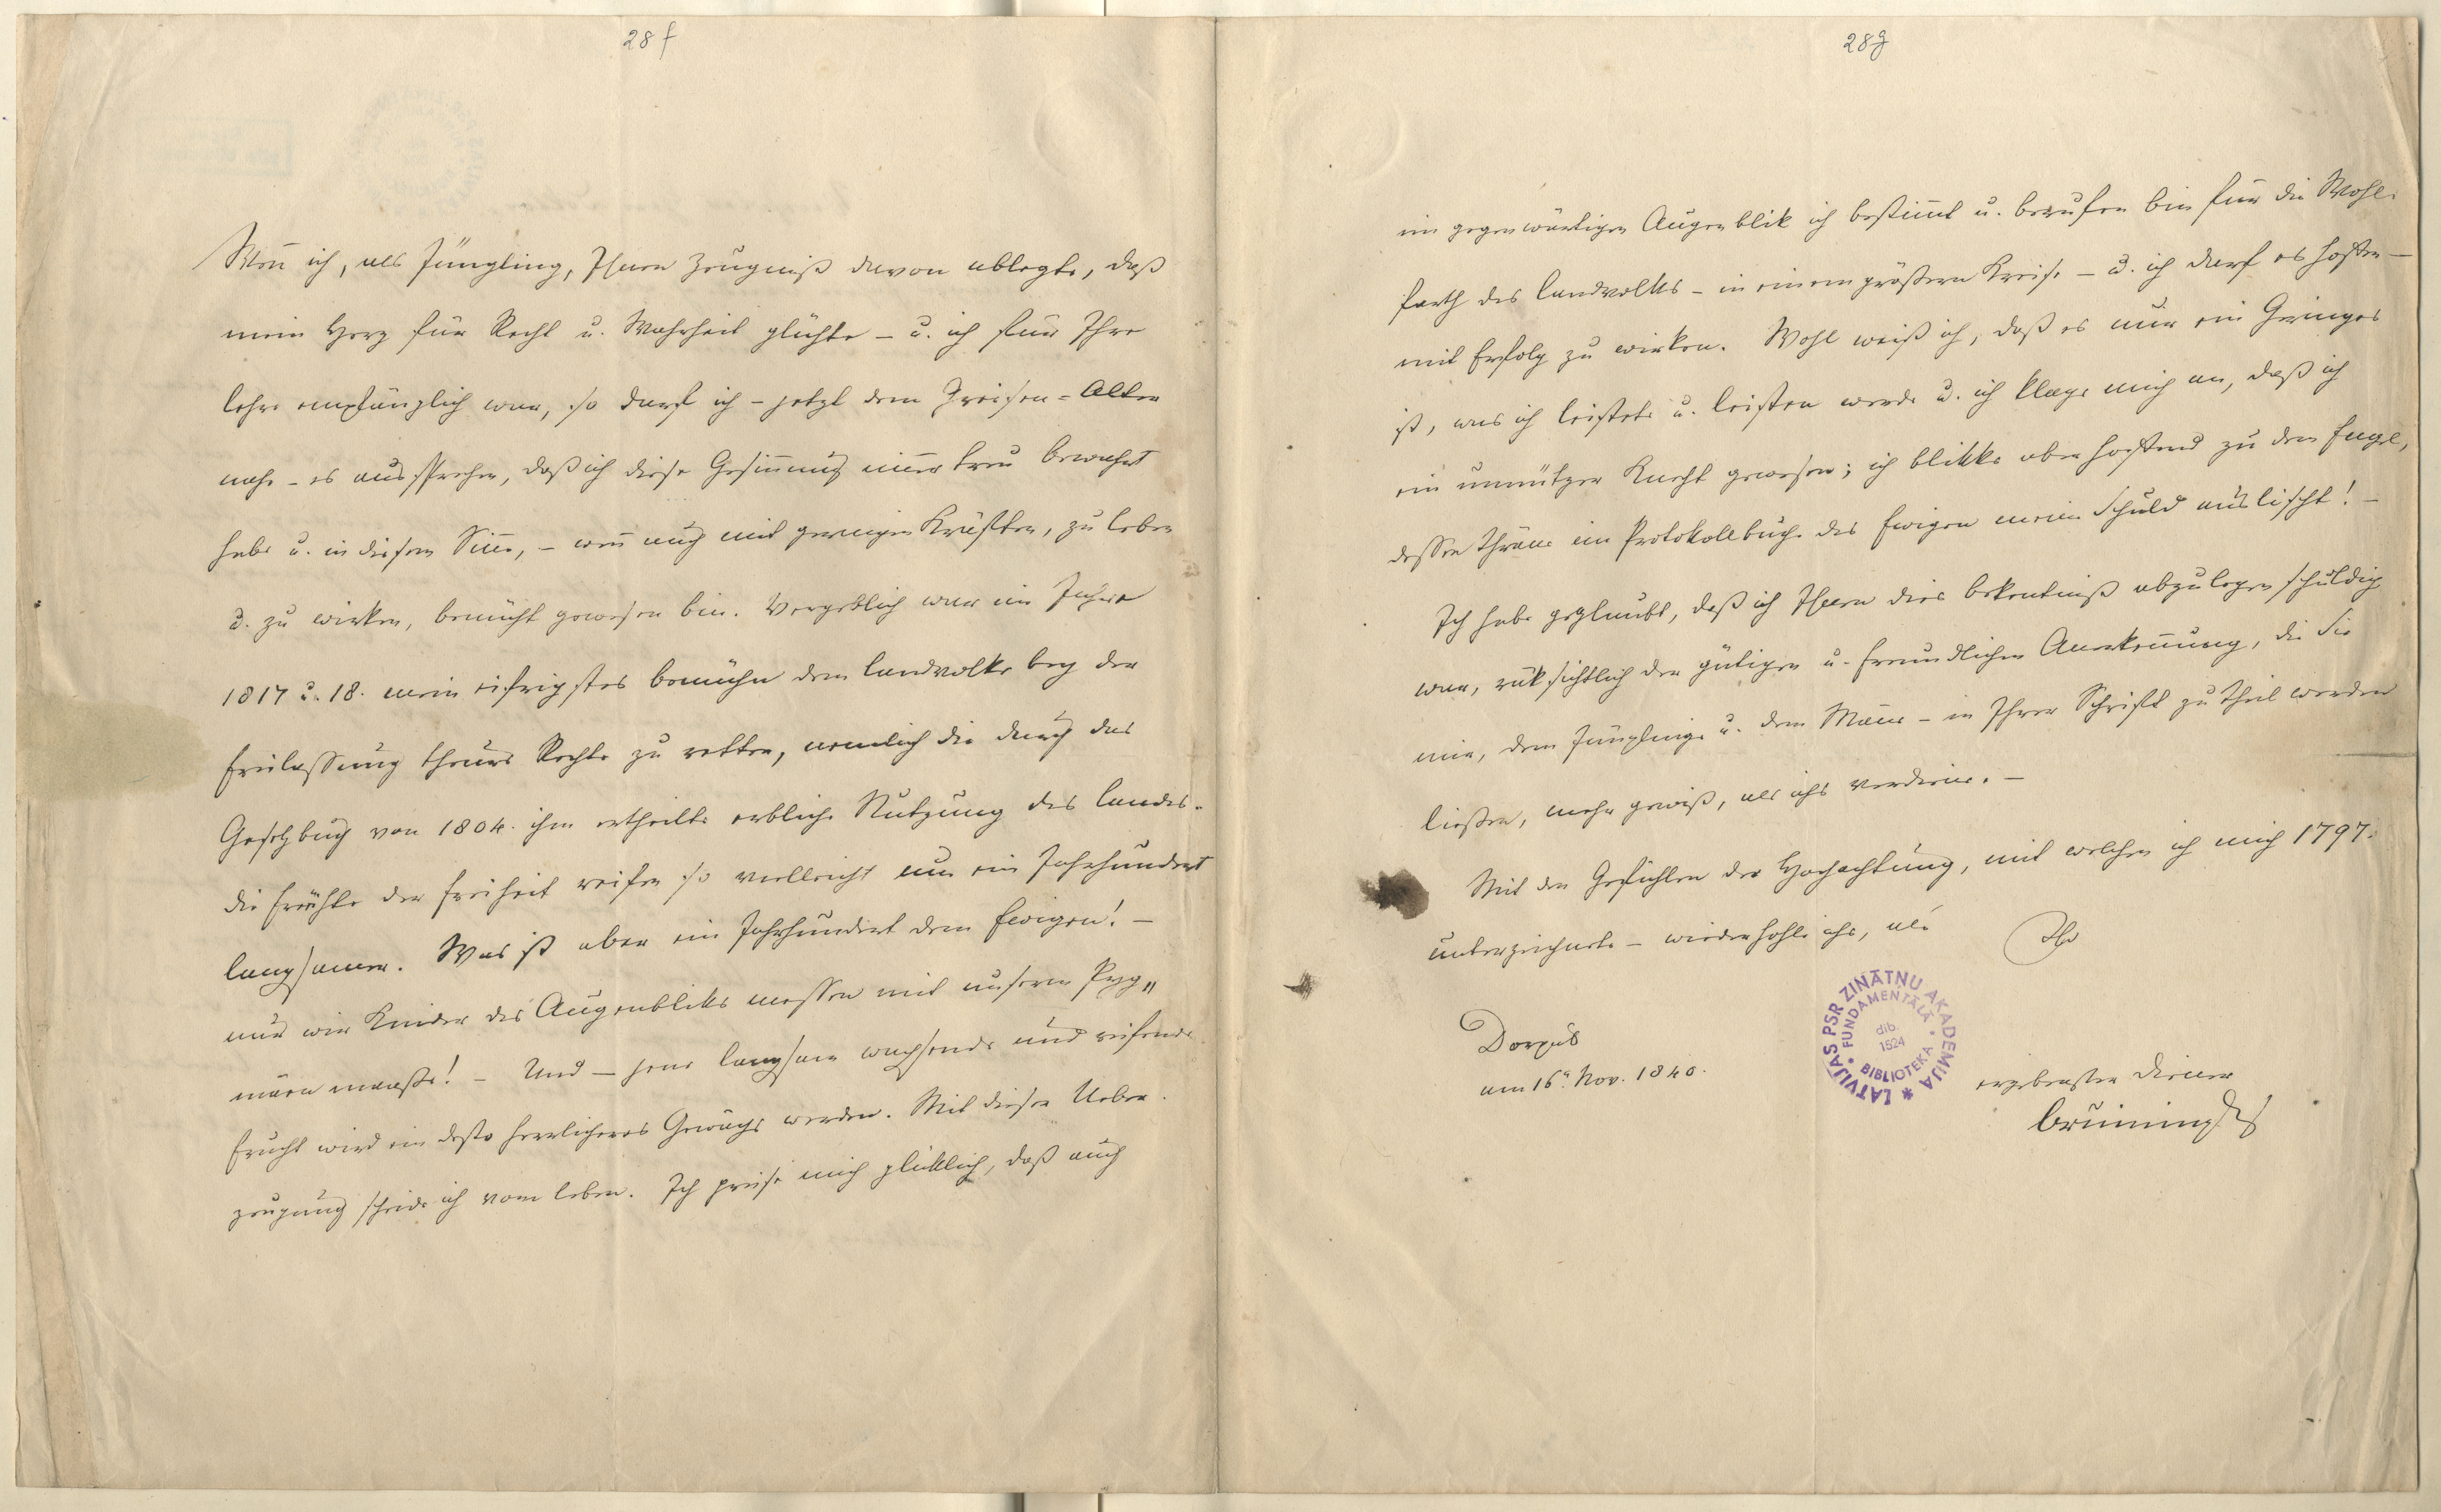 28 f
Wen̄ ich, als Jüngling, Ihnen Zeugniß davon ablegte, daß
mein Herz für Recht u. Wahrheit glühte – u. ich für Ihre
Lehre empfänglich war, so darf ich – jetzt dem Greisen-Alter
nahe – es aussprechen, daß ich diese Gesin̄ung im̄er treu bewahrt
habe u. in diesem Sin̄e, – wen̄ auch mit geringen Kräften, zu leben
u. zu wirken, bemüht gewesen bin. Vergeblich war im Jahre
1817 u. 18. mein eifrigstes Bemühn dem Landvolke bey der
Freilassung theure Rechte zu retten, nemlich die durch das
Gesetzbuch von 1804. ihm ertheilte erbliche Nutzung des Landes.
die Früchte der Freiheit reifen so vielleicht um ein Jahrhundert
langsamer. Was ist aber ein Jahrhundert dem Ewigen! –
nur wir Kinder des Augenbliks messen mit unserm Pyg„
mäen maaße! – Und – jene langsam wachsende und reifende
Frucht wird ein desto herrlicheres Gewächs werden. Mit dieser Ueber.
zeugung scheide ich vom Leben. Ich preise mich glüklich, daß auch
28 g
im gegenwärtigen Augenblik ich bestim̄t u. berufen bin für die Wohl.
farth des Landvolks – in einem größern Kreise – u. ich darf es hoffen –
mit Erfolg zu wirken. Wohl weiß ich, daß es nur ein Geringes
ist, was ich leistete u. leisten werde u. ich klage mich an, daß ich
ein unnützer Knecht gewesen; ich blikke aber hoffend zu dem Engel,
dessen Thräne im Protokollbuche des Ewigen meine Schuld auslischt! –
Ich habe geglaubt, daß ich Ihnen dies Bekentniß abzulegen schuldig
war, rüksichtlich der gütigen u. freundlichen Anerken̄ung, die Sie
mir, dem Jünglinge u. dem Man̄e – in Ihrer Schrift zu Theil werden
ließen, mehr gewiß, als ichs verdiene. –
Mit den Gefühlen der Hochachtung, mit welchen ich mich 1797.
unterzeichnete – wiederhohle ichs, als
Ihr
Dorpat
am 16ⁿ Nov. 1840.
ergebenster Diener
Bruiningk
LATVIJAS PSR ZINĀTŅU AKADĒMIJA *
• FUNDAMENTĀLĀ • BIBLIOTEKA
dib.
1524